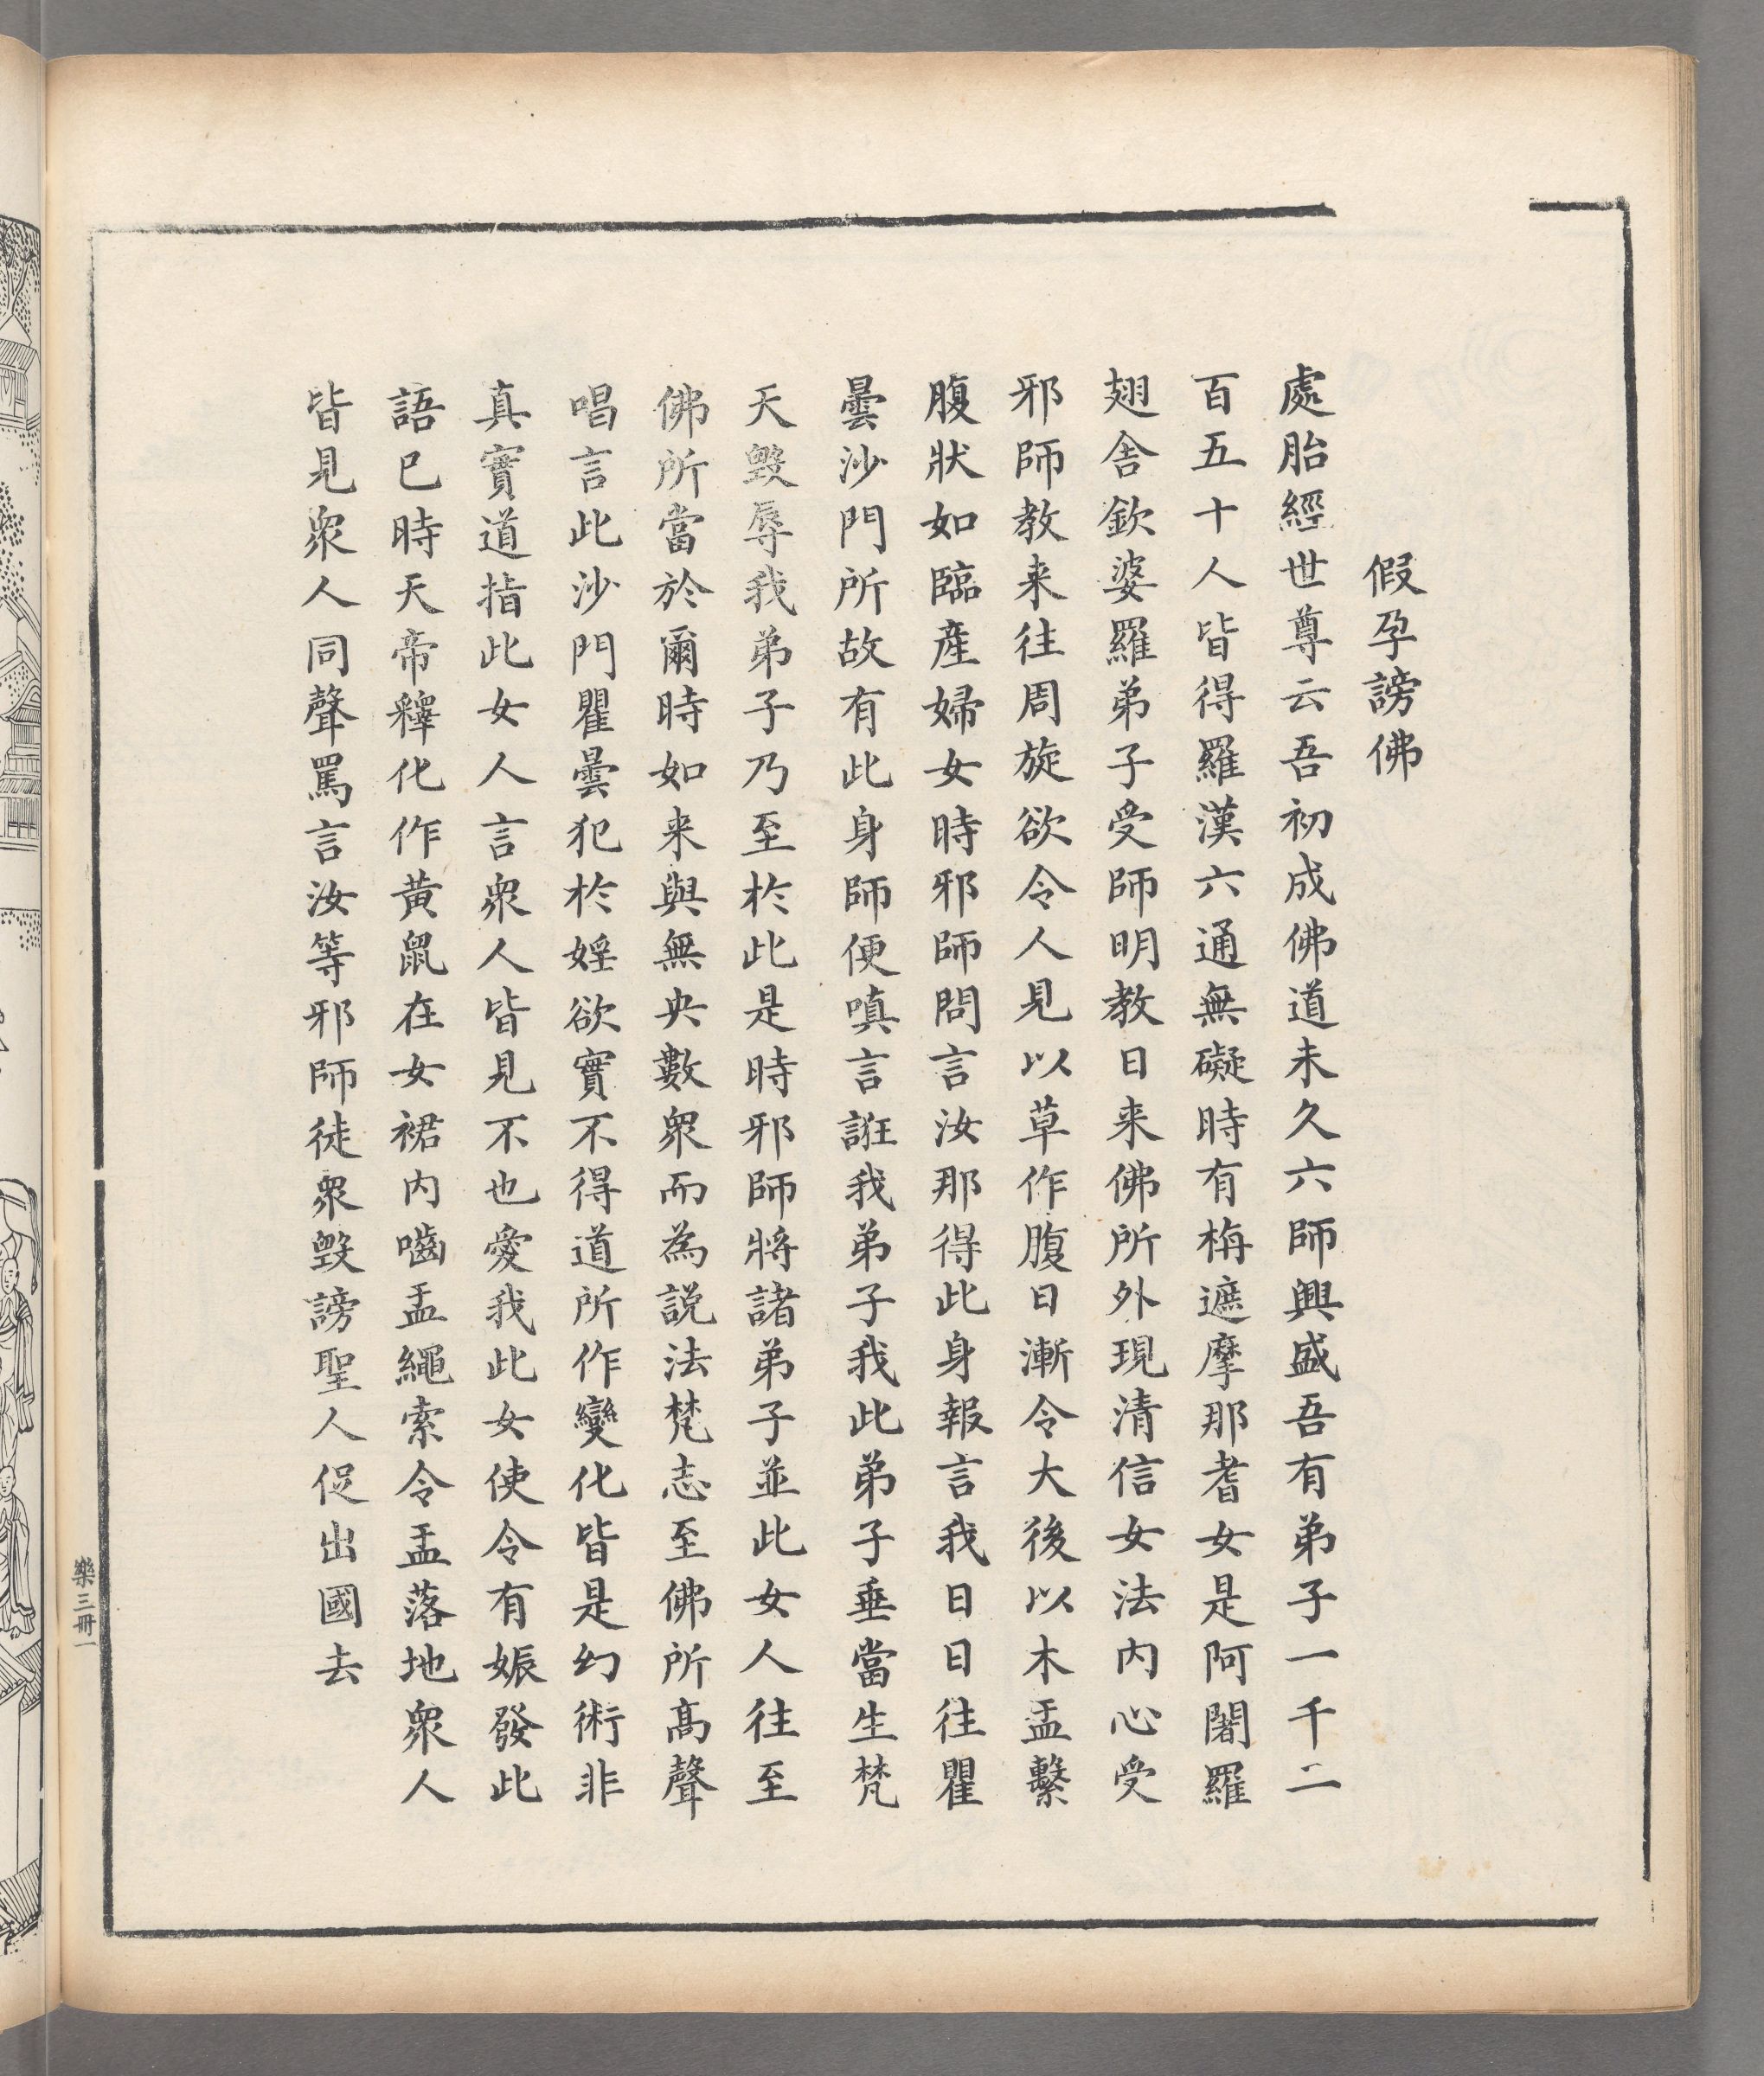 假孕謗佛
處胎經世尊云吾初成佛道未久六師興盛吾有弟子一千二
百五十人皆得羅漢六通無礙時有栴遮摩那耆女是阿闍羅
翅舍欽婆羅弟子受師明教日来佛所外現清信女法内心受
邪師教来往周旋欲令人見以草作腹日漸令大後以木盂繫
腹狀如臨産婦女時邪師問言汝那得此身報言我日日往瞿
曇沙門所故有此身師便嗔言誑我弟子我此弟子垂當生梵
天毀辱我弟子乃至於此是時邪師將諸弟子並此女人往至
佛所當於爾時如来與無央數衆而為説法梵志至佛所高聲
唱言此沙門瞿曇犯於婬欲實不得道所作變化皆是幻術非
真實道指此女人言衆人皆見不也愛我此女使令有娠發此
語已時天帝釋化作黄鼠在女裙内嚙盂繩索令盂落地衆人
皆見衆人同聲罵言汝等邪師徒衆毀謗聖人促出國去
樂三冊一